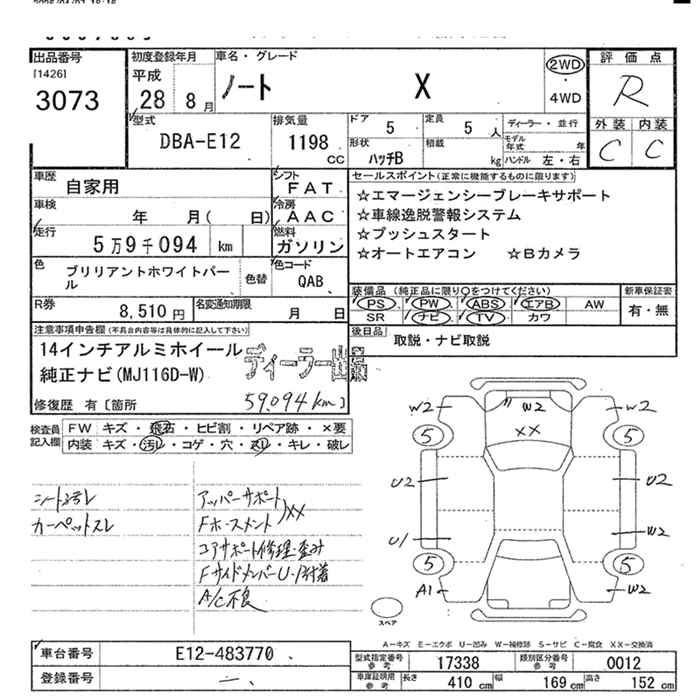 出品番号
[1426]
3073
初度登録年月
平成
28 8月
車名・グレード
ノート X
2WD
・
4WD
評価点
R
外装 内装
C C
型式
DBA-E12
排気量
1198
CC
ドア
5
定員
5 人
形状
ハッチB
積載
kg
ディーラー・並行
モデル年式 年
ハンドル 左・右
車歴
自家用
シフト
FAT
車検
年 月( 日)
冷房
AAC
走行
5万9千094 km
燃料
ガソリン
色
ブリリアントホワイトパール
色替
色コード
QAB
R券
8,510円
名変通知期限
月 日
セールスポイント(正常に機能するものに限ります)
☆エマージェンシーブレーキサポート
☆車線逸脱警報システム
☆プッシュスタート
☆オートエアコン ☆Bカメラ
装備品(純正品に限り○をつけてください)
新車保証書
PS PW ABS エアB AW
SR ナビ TV カワ
有・無
後日品
取説・ナビ取説
注意事項申告欄(不具合内容等は具体的に記入して下さい)
14インチアルミホイール
純正ナビ(MJ116D-W)
ディーラー出品
修復歴 有〔箇所 59,094km〕
検査員記入欄
FW キズ・飛石・ヒビ割・リペア跡・×要
内装 キズ・汚レ・コゲ・穴・スレ・キレ・破レ
シート汚レ
カーペットスレ
アッパーサポート
Fホースメント
XX
コアサポート修理・歪み
FサイドメンバーU・1付着
A/C不良
W2 W2 W2
XX
5 5
U2 U2
U1 W2
5 5
A1 W2
スペア
A-キズ E-エクボ U-凹み W-補修跡 S-サビ C-腐食 XX-交換済
車台番号
E12-483770
登録番号
型式指定番号
参考
17338
類別区分番号
参考
0012
車庫証明用
参考
長さ 410 cm
幅 169 cm
高さ 152 cm